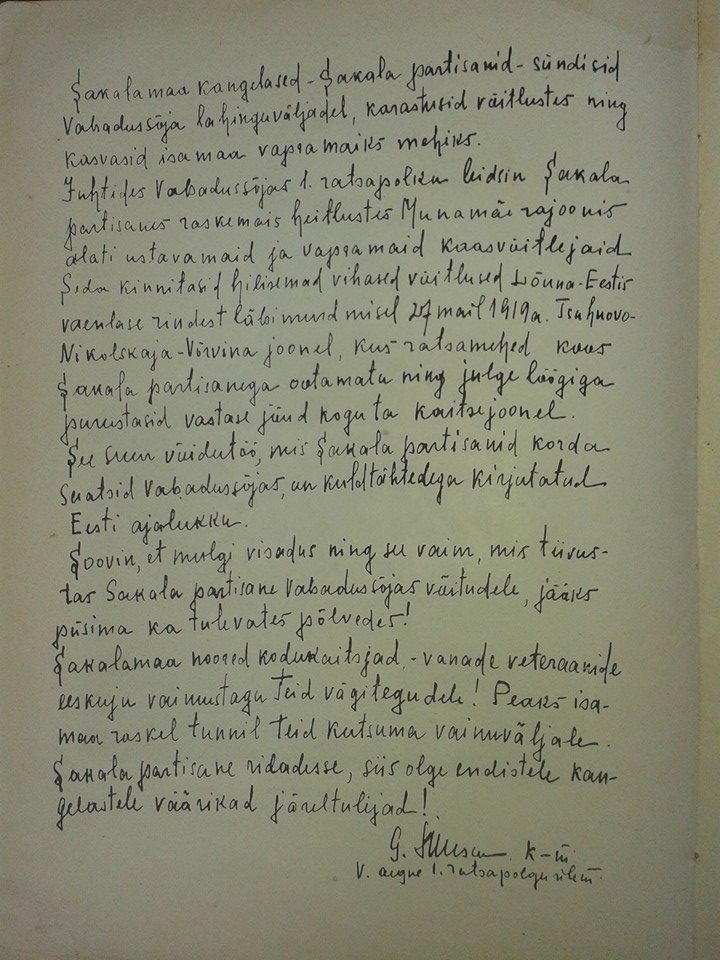 Sakalamaa kangelased - Sakala partisanid - sündisid
Vabadussõja lahinguväljadel, karastusid võitlustes ning
kasvasid isamaa vapramaiks mehiks.
Juhtides Vabadussõjas 1. ratsapolku leidsin Sakala
partisanes raskemais heitlustes Munamäe rajoonis
alati ustavamaid ja vapramaid kaasvõitlejaid
Seda kinnitasid hilisemad vihased võitlused Lõuna-Eestis
vaenlase rindest läbimurdmisel 27 mail 1919a.
Nikolskaja-Võrvina joonel, kus ratsamehed koos
Sakala partisanega ootamatu ning julge löögiga
purustasid vastase jõud kogu ta kaitsejoonel.
See suur võidutöö, mis Sakala partisanid korda
saatsid Vabadussõjas, on kuldtähtedega kirjutatud
Eesti ajalukku.
Soovin, et mulgi visadus ning see vaim, mis tiivus-
tas Sakala partisane Vabadussõjas võitudele, jääks
püsima ka tulevates põlvedes!
Sakalamaa noored kodukaitsjad, - vanade veteraanide
eeskuju vaimustagu Teid vägitegudele! Peaks isa-
maa raskel tunnil Teid kutsuma vainuväljale.
Sakala partisane ridadesse, siis olge endistele kan-
gelastele väärikad järeltulijad!
G. K-m
V. aegne 1. ratsapolgu ülem.